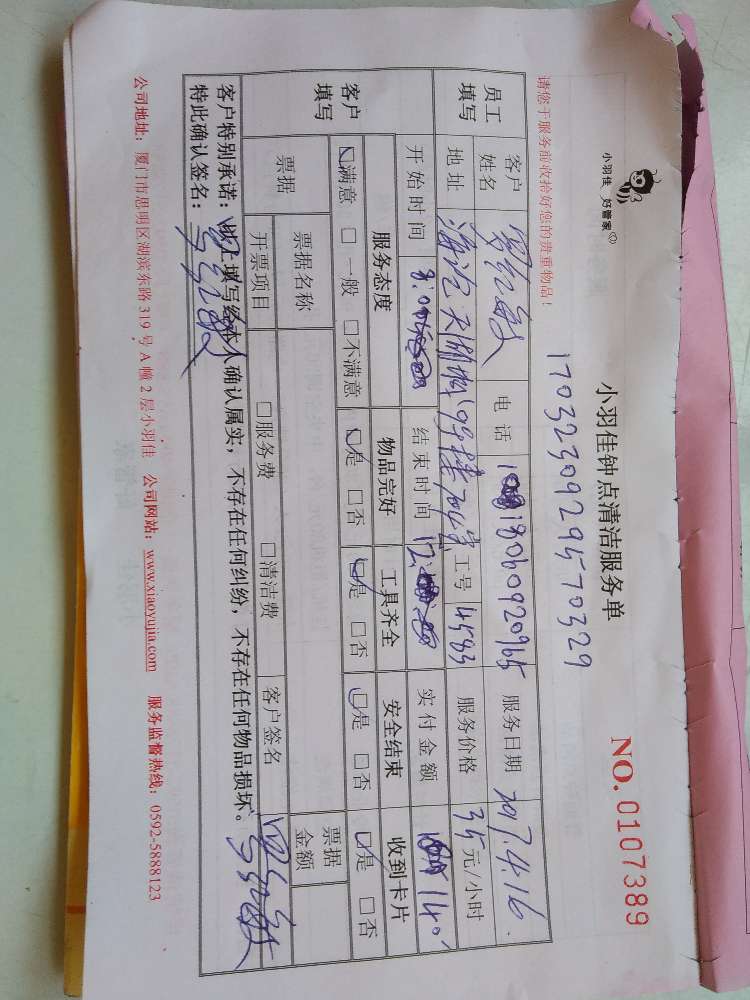 小羽佳 好管家
小羽佳钟点清洁服务单
NO.0107389
请您于服务前收拾好您的贵重物品！
17032309295 70329
员工填写
客户姓名 电话 18060920965 服务日期 2017.4.16.
地址 天湖城 工号 4583 服务价格 35元/小时
开始时间 8:00 结束时间 12: 实付金额 140
客户填写
服务态度 物品完好 工具齐全 安全结束 收到卡片
☑满意 □一般 □不满意 ☑是 □否 ☑是 □否 ☑是 □否 ☑是 □否
票据 票据名称 票据金额
开票项目 □服务费 □清洁费 客户签名
客户特别承诺：以上填写经本人确认属实，不存在任何纠纷，不存在任何物品损坏。
特此确认签名：
公司地址：厦门市思明区湖滨东路319号A幢2层小羽佳 公司网站：www.xiaoyujia.com 服务监督热线：0592-5888123